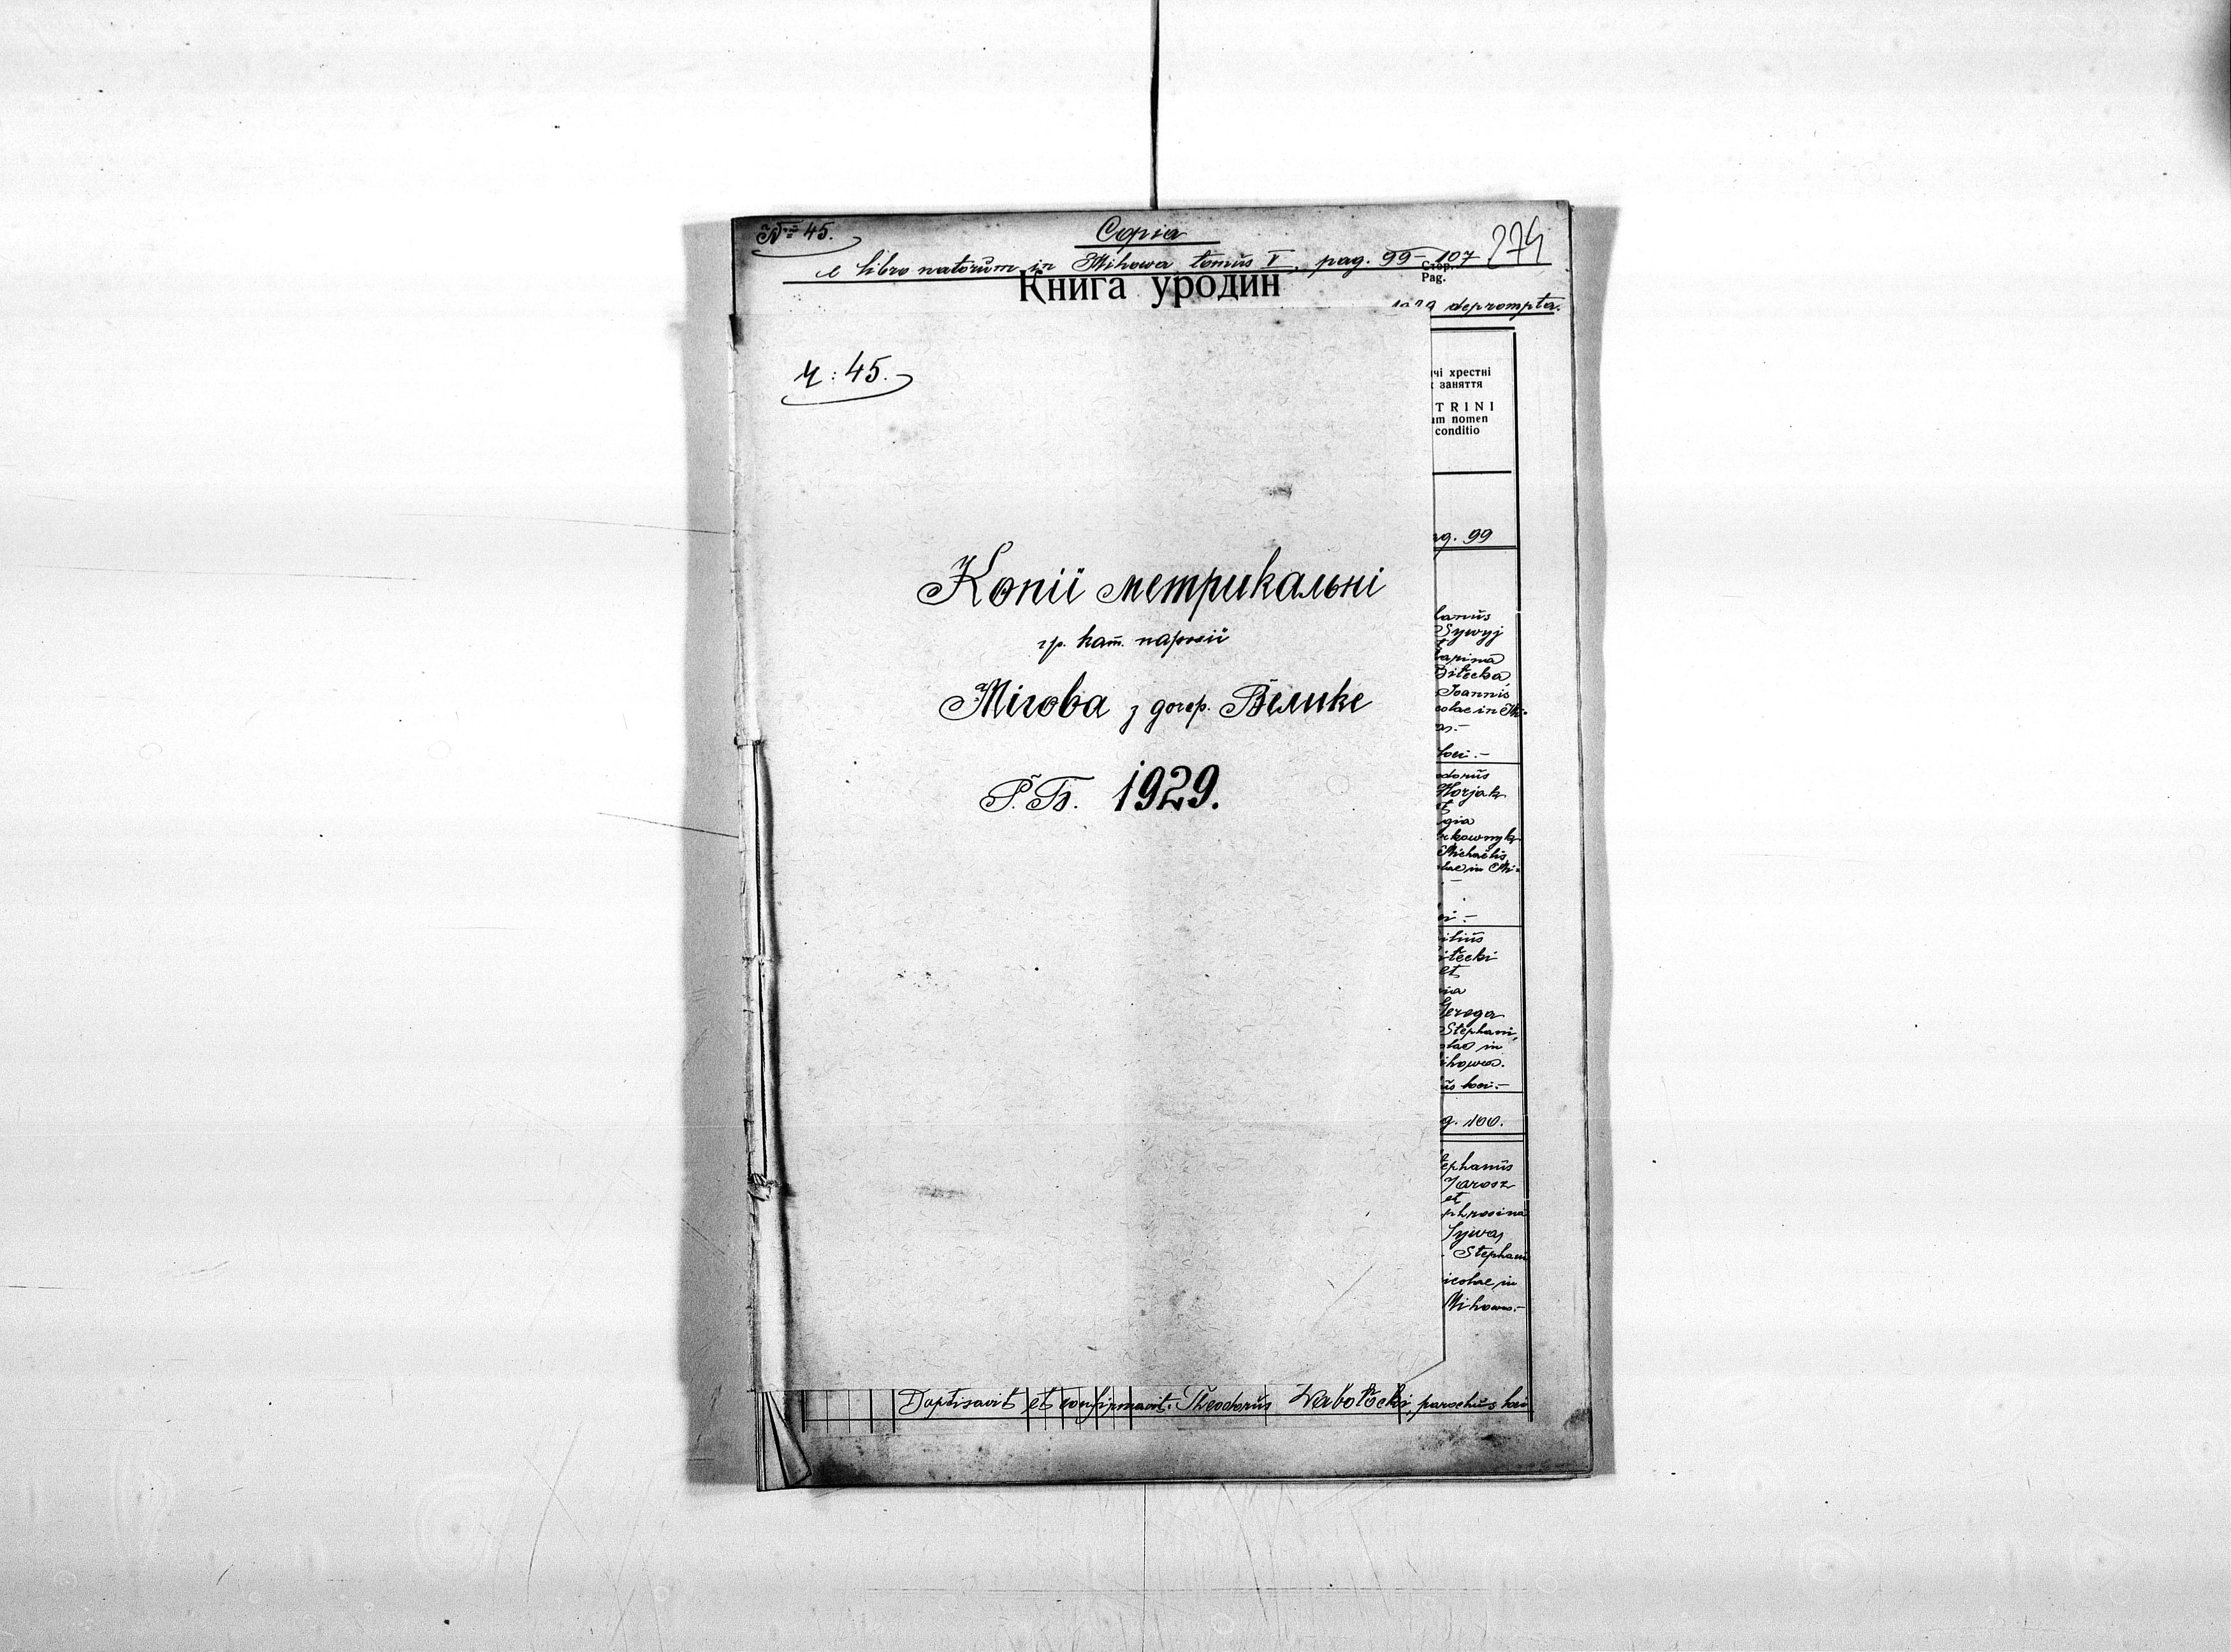 № 45.
Copia
e libro natorum in Mihowa tomus V, pag. 99–107
274
Стор.
Pag.
Книга уродин
1929 deprompta.
ч: 45.
чі хрестні
заняття
TRINI
um nomen
conditio
ag. 99
Копії метрикальні
гр. кат. парохії
Мігова з дочер. Велике
Р. Б. 1929.
lanus
Sywyj
et
tarina
Bilecka,
Joannis
colae in Mi-
loci.–
odorus
Horjak
et
gia
rkownyk
Michaelis
olae in Mi-
ci.–
silius
ilecki
et
ria
Geroga
Stephani,
olae in
ihowa.
us loci.–
g. 100.
tephanus
Jarosz
et
phrosina
Sywa,
Stephani
icolae in
Mihowa.–
Baptisavit et confirmavit: Theodorus Zabołocki, parochus loci